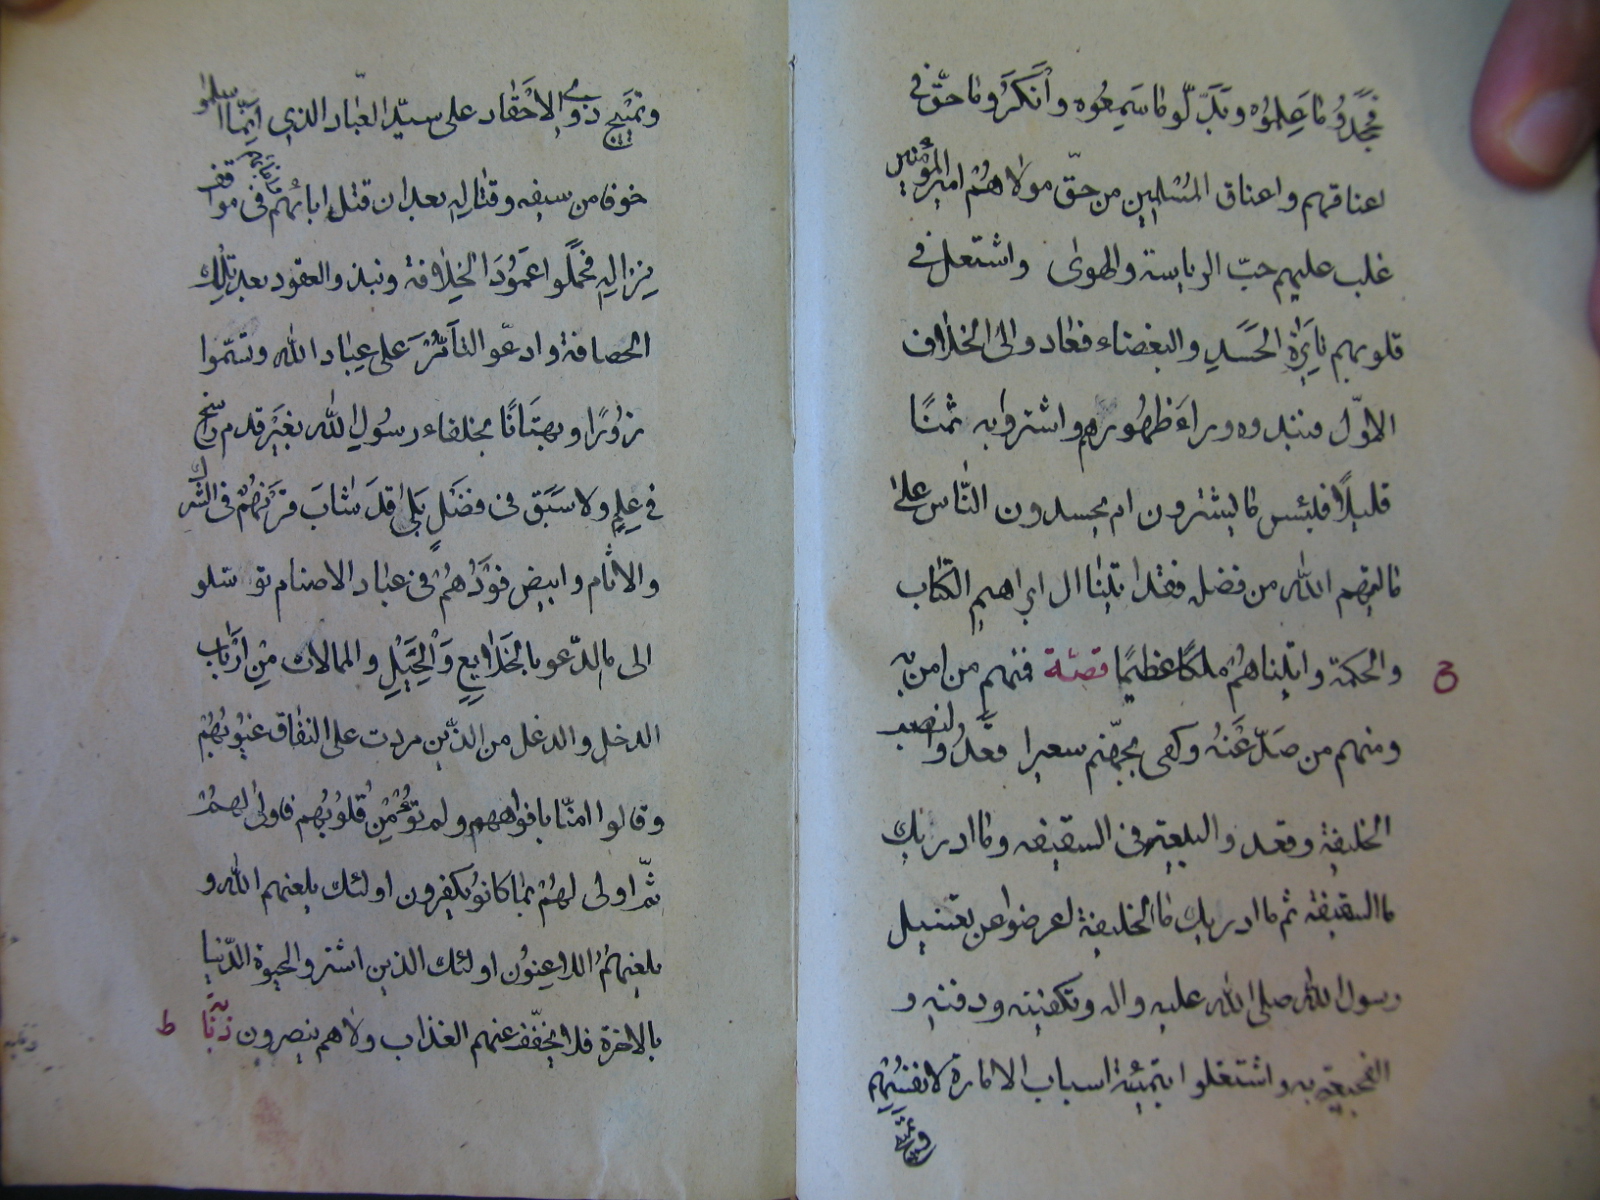 فجحدوا ما علموه وبدّلوا ما سمعوه وأنكروا ما حقّ في
اعناقهم واعناق المسلمين من حقّ مولاهم امير المؤمنين
غلب عليهم حبّ الرياسة والهوى واشتعل في
قلوبهم نايرة الحسد والبغضاء فعادوا الى الخلاف
الاوّل فنبذوه وراء ظهورهم واشتروا به ثمنًا
قليلًا فلبئس ما يشترون ام يحسدون النّاس على
ما اتيهم الله من فضله فقد اتينا ال ابراهيم الكتاب
والحكمة واتيناهم ملكًا عظيمًا فمنهم من امن به
ح
ومنهم من صدّ عنه وكفى بجهنّم سعيرا فعدّوا لنصب
الخليفة وقعدوا للبيعة في السقيفه وما ادريك
ما السقيفة ثم ما ادريك ما الخليفة اعرضوا عن تغسيل
رسول الله صلى الله عليه واله وتكفينه ودفنه و
الفجيعة به واشتغلوا بتهيئة اسباب الامارة لانفسهم
وتهييج ذوي الاحقاد على سيّد العبّاد الذي انّما اسلموا
خوفا من سيفه وقتاله بعد ان قتل ابائهم في مواقف
نزاله فحملوا عمود الخلافة ونبذوا العقود بعد تلك
الحصافة وادعّوا التأمّر على عباد الله وتسمّوا
زورًا وبهتانًا بخلفاء رسول الله بغير قدم راسخ
في علم ولا سبق في فضل بلى قد شاب قرنهم في الشرك
والاثام وابيض فودهم في عباد الاصنام توسلوا
الى ما ادّعوا بالخدايع والحيل والمالات من ارباب
الدخل والدغل من الذين مردت على النفاق غيوبهم
وقالوا امنّا بافواههم ولم تؤمن قلوبهم فاولى لهم
ثمّ اولى لهم بما كانوا يكفرون اولئك يلعنهم الله و
يلعنهم اللاعنون اولئك الذين اشتروا الحيوة الدّنيا
بالاخرة فلا يخفّف عنهم العذاب ولا هم ينصرون
ط